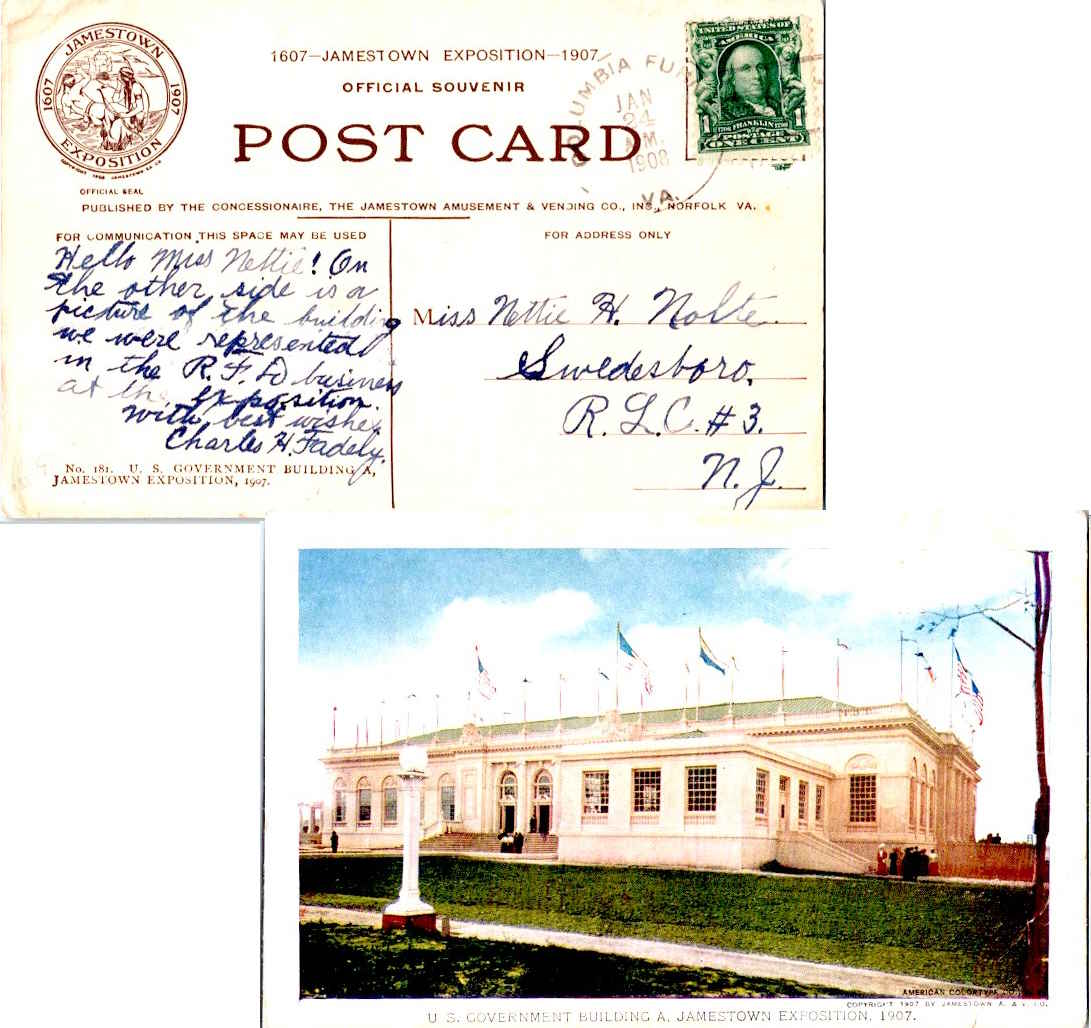 JAMESTOWN
1607 1907
EXPOSITION
OFFICIAL SEAL
1607—JAMESTOWN EXPOSITION—1907
OFFICIAL SOUVENIR
POST CARD
JAN
24
1908
VA.
UNITED STATES OF
AMERICA
FRANKLIN
1 POSTAGE 1
ONE CENT
PUBLISHED BY THE CONCESSIONAIRE, THE JAMESTOWN AMUSEMENT & VENDING CO., INC., NORFOLK VA.
FOR COMMUNICATION THIS SPACE MAY BE USED
FOR ADDRESS ONLY
Hello Miss Nettie! On
the other side is a
picture of the building
we were represented
in the R. F. D business
at the exposition.
with best wishes
Charles H. Fadely.
Miss Nettie H. Nolte.
Swedesboro,
R. L. C. # 3.
N. J.
No. 181. U. S. GOVERNMENT BUILDING A,
JAMESTOWN EXPOSITION, 1907.
AMERICAN COLORTYPE
COPYRIGHT 1907 BY JAMESTOWN A. & V. CO.
U. S. GOVERNMENT BUILDING A, JAMESTOWN EXPOSITION, 1907.